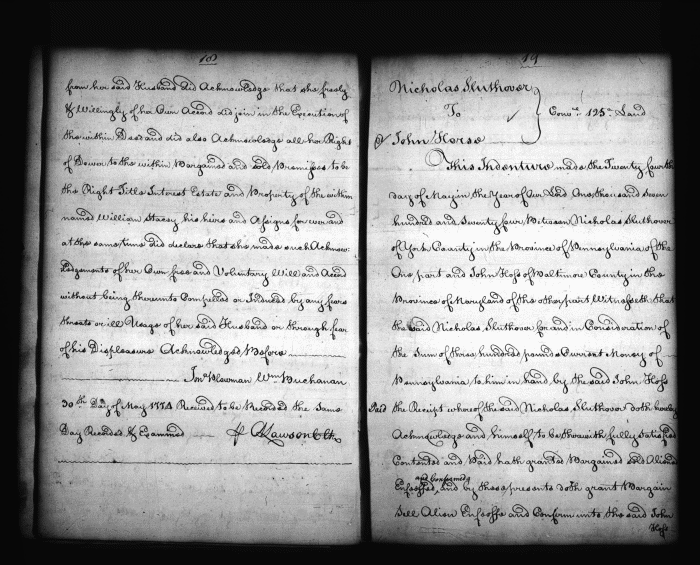 18
from her said Husband did Acknowledge that she freely
& Willingly of her Own Accord did join in the Execution of
the within Deed and did also Acknowledge all her Right
of Dower to the within Bargained and Sold Premises to be
the Right Title Interest Estate and Property of the within
named William Stacey his heirs and Assigns for ever and
at the same time did declare that she made such Acknow-
ledgements of her Own free and Voluntary Will and Accd
without being thereunto Compelled or Induced by any fears
threats or ill Usage of her said Husband or through fear
of his Displeasure Acknowledged Before
Jno Plowman Wm Buchanan
30th Day of May 1774 Received to be Recorded the Same
Day Recorded & Examined ⅌ A Lawson Clk
19
Nicholas Sluthover
To Conve 125a Land
John Horse
This Indenture made the Twenty fourth
day of May in the Year of our Lord One thousand seven
hundred and seventy four Between Nicholas Sluthover
of York County in the Province of Pennsylvania of the
One part and John Hoss of Baltimore County in the
Province of Maryland of the other part Witnesseth that
the said Nicholas Sluthover for and in Consideration of
the Sum of three hundred pounds Current Money of
Pennsylvania to him in hand by the said John Hoss
Paid the Receipt whereof the said Nicholas Sluthover doth hereby
Acknowledge and himself to be therewith fully satisfied
Contented and Paid hath granted Bargained Sold Aliened
and Confirmed
Enfeoffed, and by these presents doth grant Bargain
Sell Alien Enfeoffe and Confirm unto the said John
Hoss